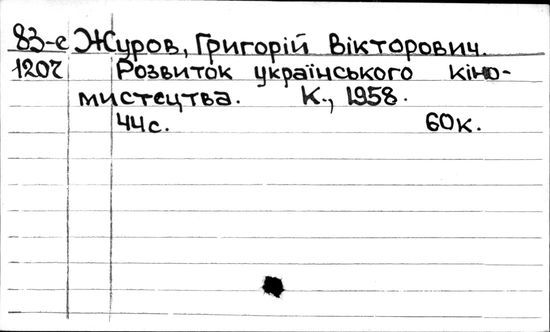 83-е Журов, Григорій Вікторович.
1207 Розвиток українського кіно-
мистецтва. К., 1958.
44с. 60к.